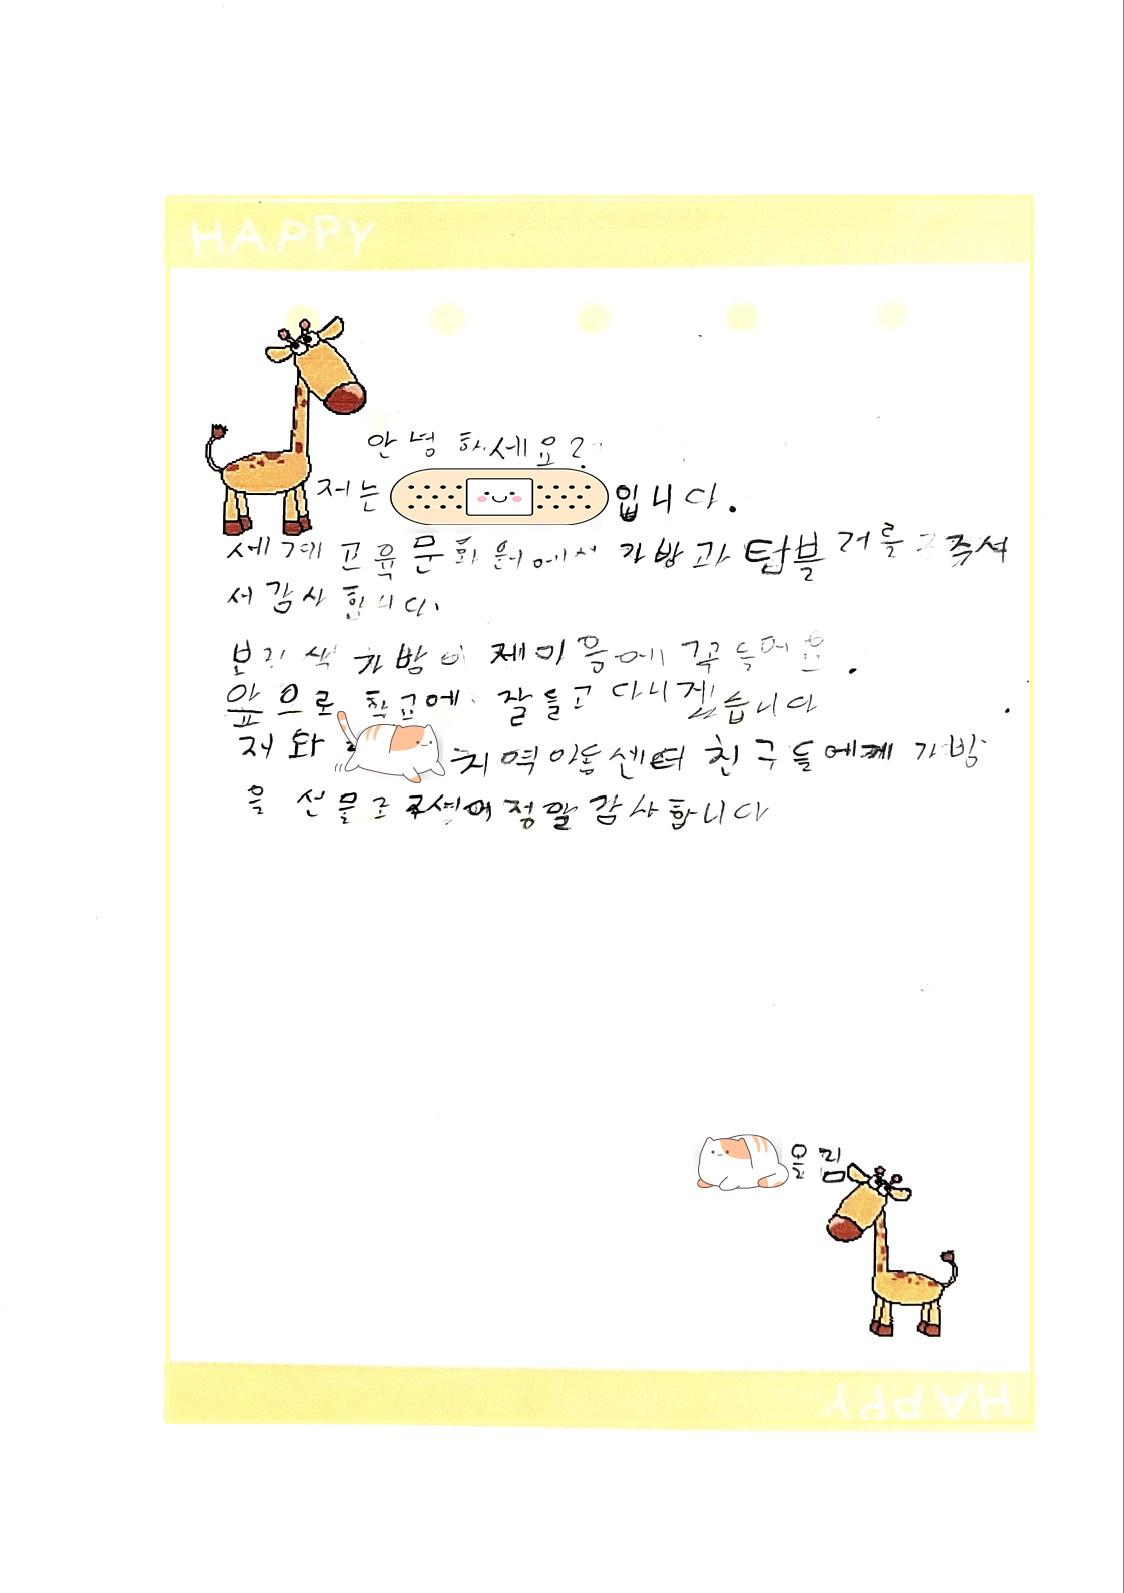 HAPPY
안녕하세요?
저는 입니다.
세계교육문화원에서 가방과 텁블러를 주셔
서 감사합니다.
보라색 가방이 제마음에 꼭들어요.
앞으로 학교에 잘들고 다니겠습니다.
저와 지역아동센터 친구들에게 가방
을 선물로 주셔어 정말 감사합니다
올림
HAPPY